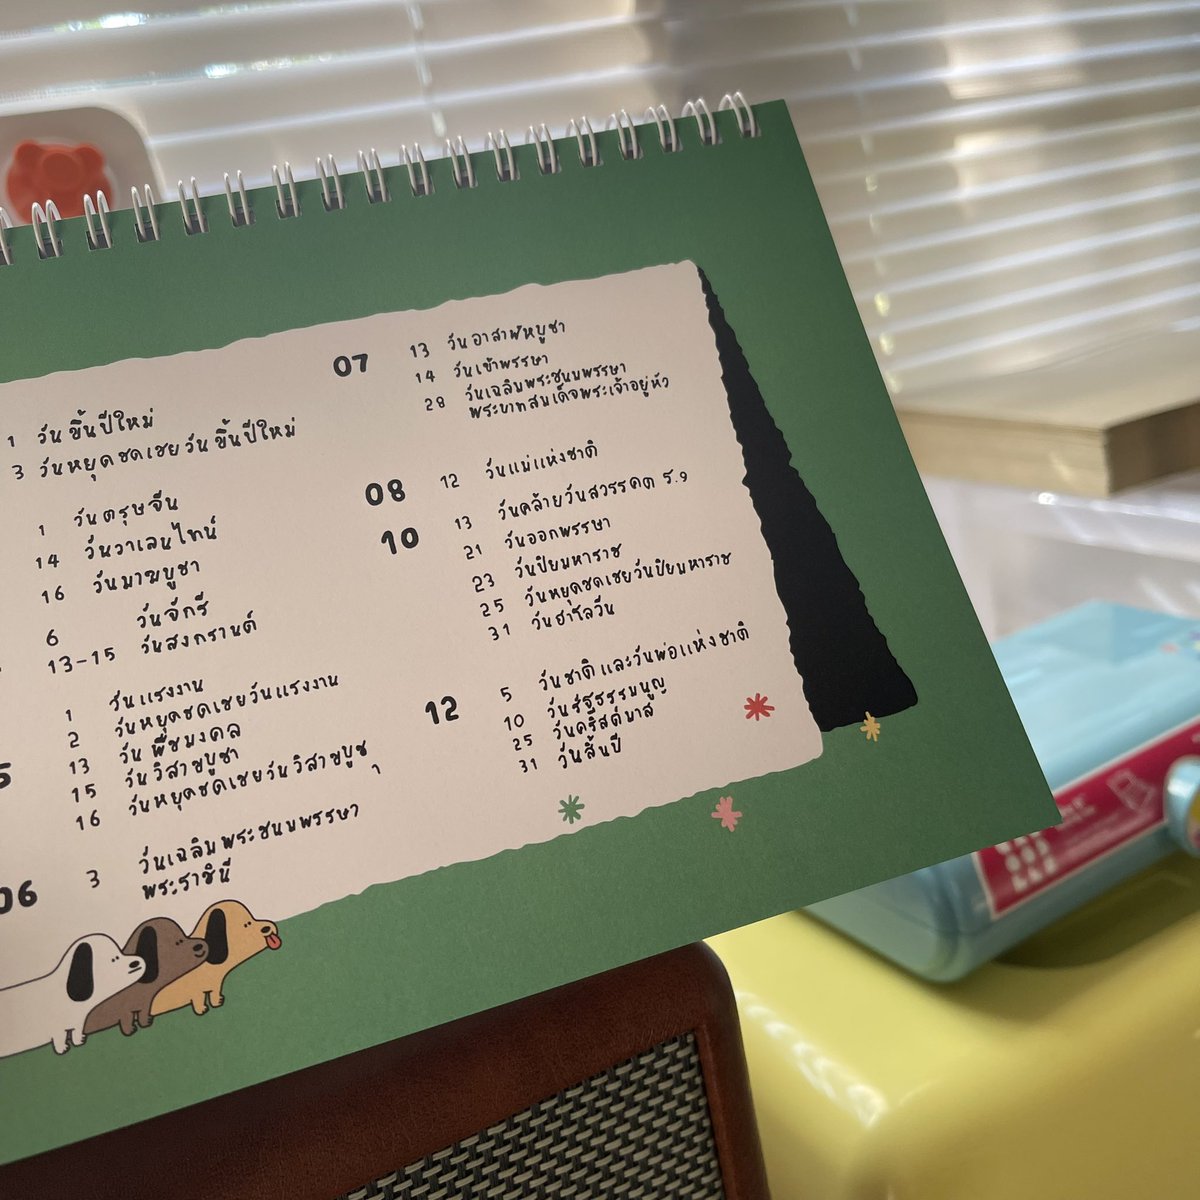 1 วันขึ้นปีใหม่
3 วันหยุดชดเชยวันขึ้นปีใหม่
1 วันตรุษจีน
14 วันวาเลนไทน์
16 วันมาฆบูชา
6 วันจักรี
13-15 วันสงกรานต์
1 วันแรงงาน
2 วันหยุดชดเชยวันแรงงาน
13 วันพืชมงคล
15 วันวิสาขบูชา
16 วันหยุดชดเชยวันวิสาขบูชา
06 3 วันเฉลิมพระชนมพรรษา
พระราชินี
07 13 วันอาสาฬหบูชา
14 วันเข้าพรรษา
28 วันเฉลิมพระชนมพรรษา
พระบาทสมเด็จพระเจ้าอยู่หัว
08 12 วันแม่แห่งชาติ
10 13 วันคล้ายวันสวรรคต ร.๙
21 วันออกพรรษา
23 วันปิยมหาราช
25 วันหยุดชดเชยวันปิยมหาราช
31 วันฮาโลวีน
12 5 วันชาติ และวันพ่อแห่งชาติ
10 วันรัฐธรรมนูญ
25 วันคริสต์มาส
31 วันสิ้นปี